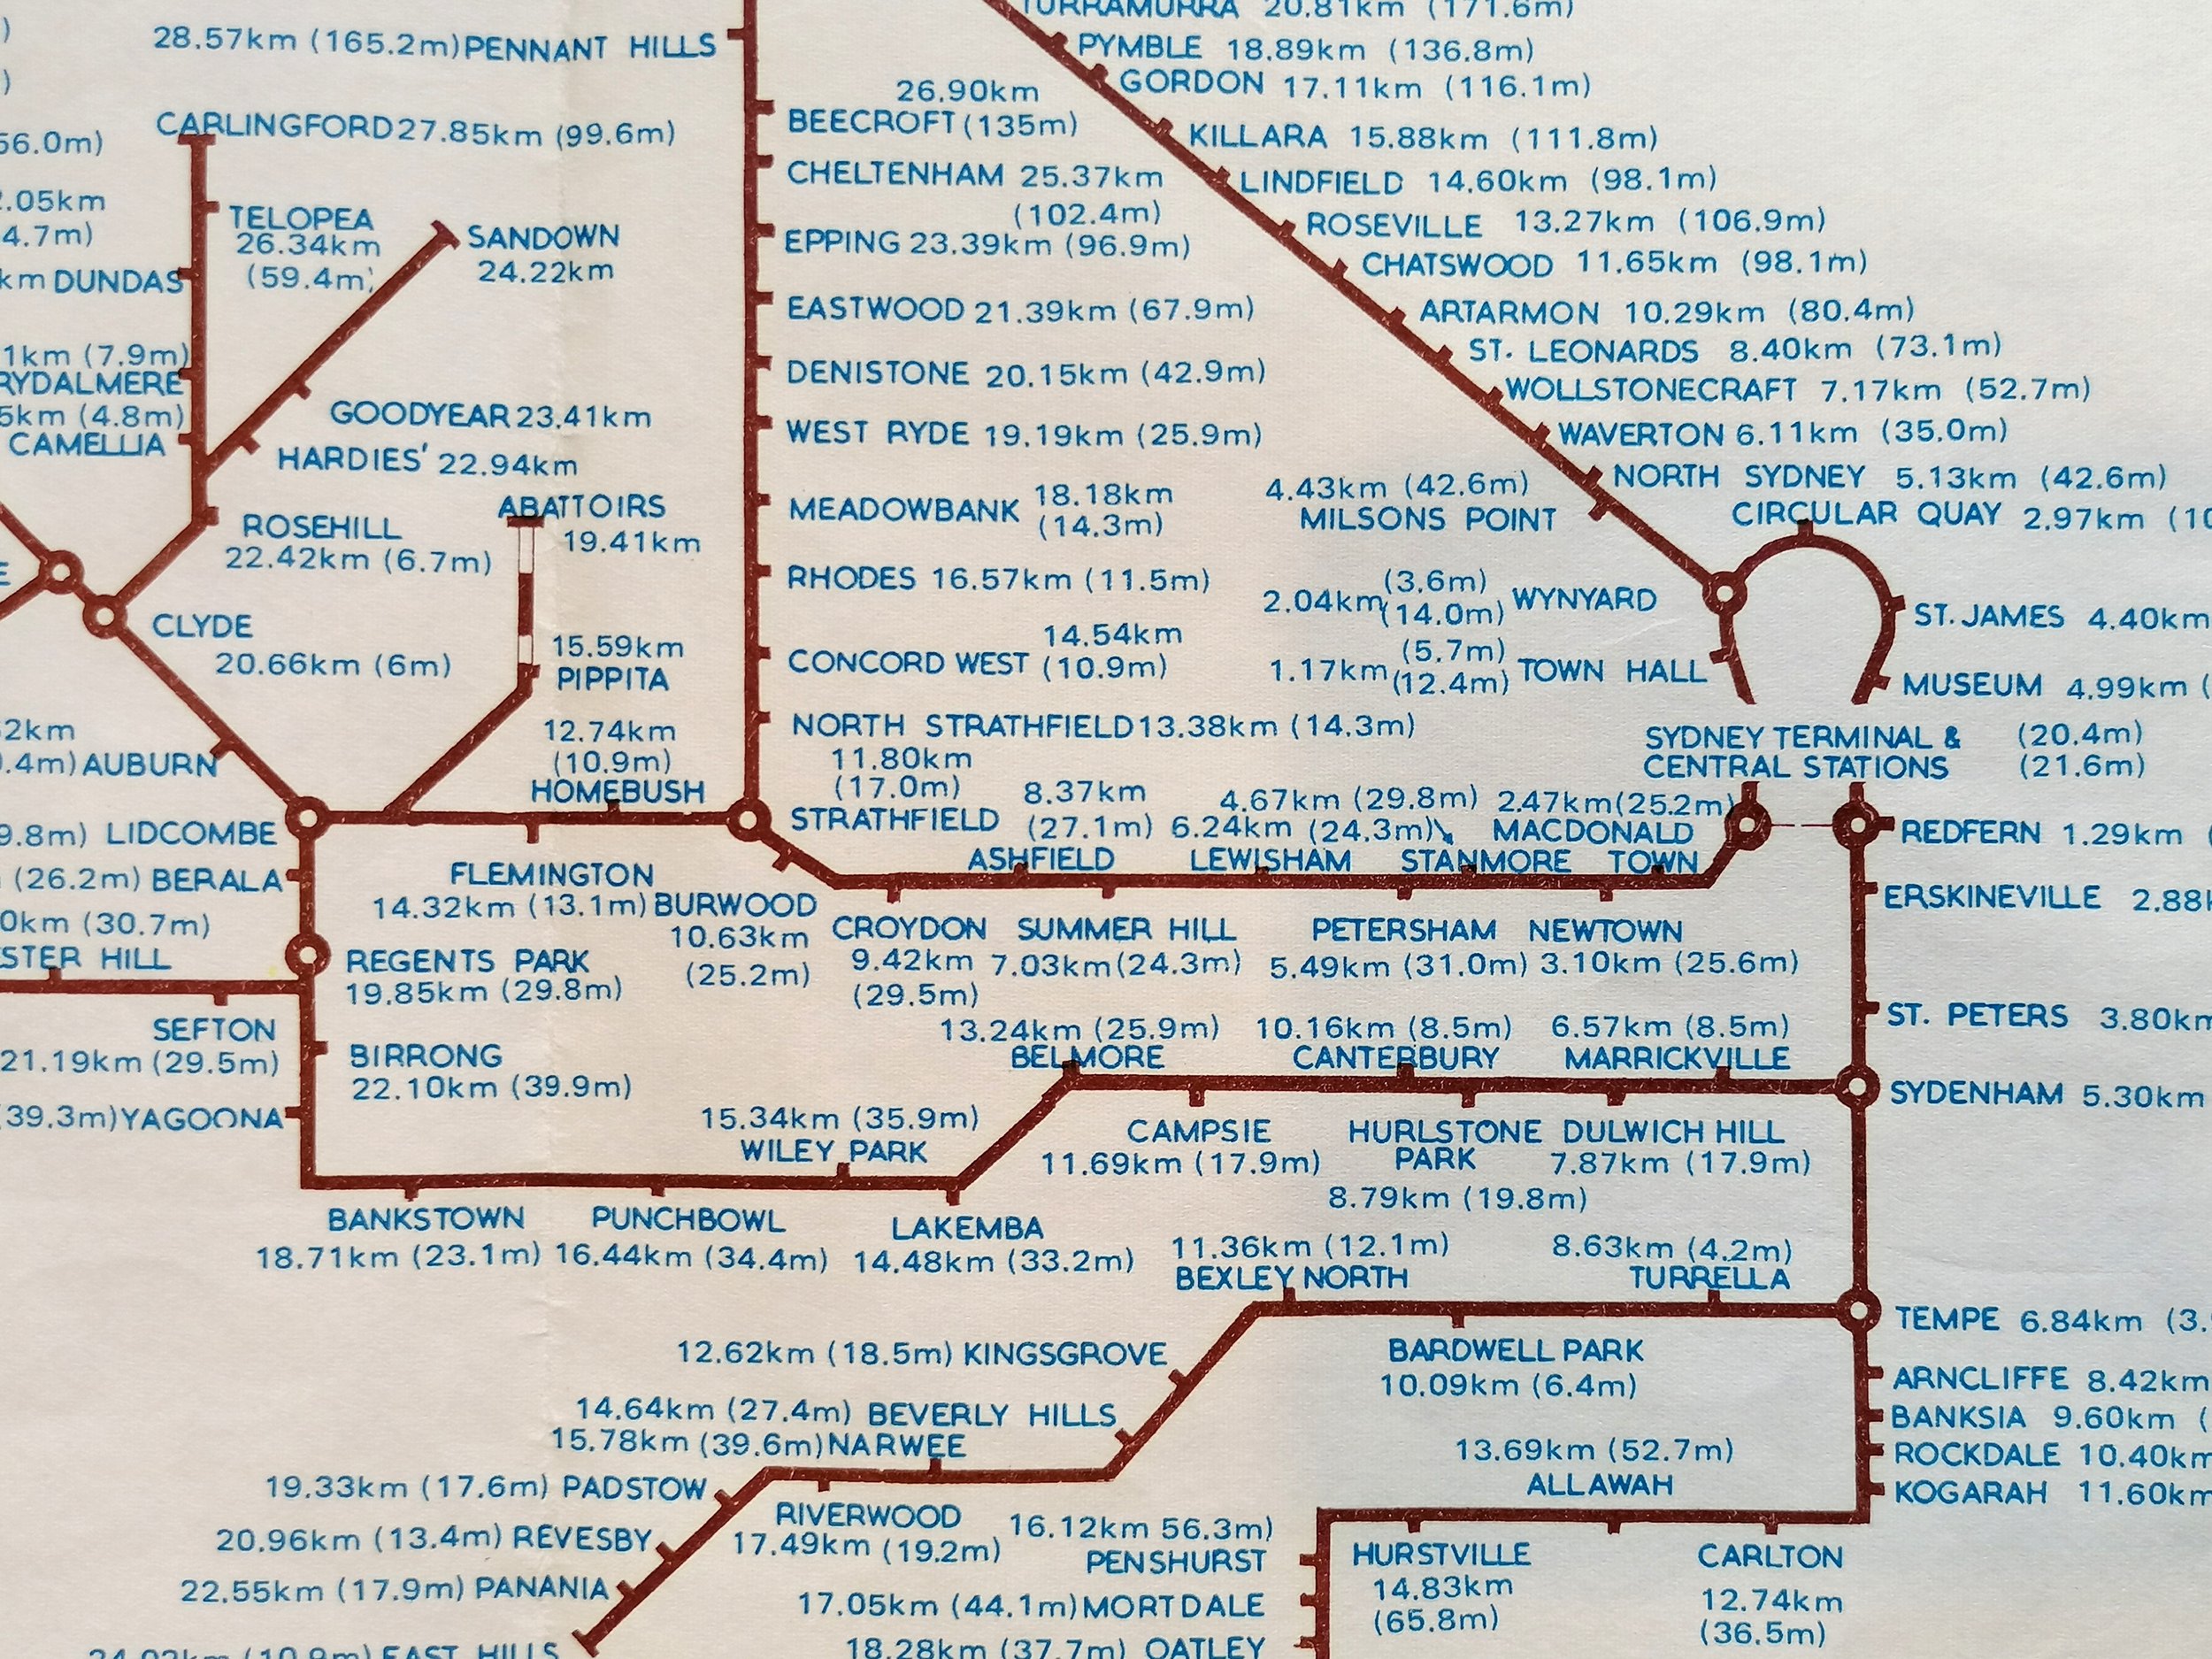 TURRAMURRA 20.81km (171.6m)
28.57km (165.2m) PENNANT HILLS
PYMBLE 18.89km (136.8m)
GORDON 17.11km (116.1m)
26.90km
BEECROFT (135m)
CARLINGFORD 27.85km (99.6m)
KILLARA 15.88km (111.8m)
56.0m)
CHELTENHAM 25.37km
(102.4m)
LINDFIELD 14.60km (98.1m)
.05km
4.7m)
TELOPEA
26.34km
(59.4m)
SANDOWN
24.22km
ROSEVILLE 13.27km (106.9m)
EPPING 23.39km (96.9m)
CHATSWOOD 11.65km (98.1m)
km DUNDAS
EASTWOOD 21.39km (67.9m)
ARTARMON 10.29km (80.4m)
1km (7.9m)
RYDALMERE
ST. LEONARDS 8.40km (73.1m)
DENISTONE 20.15km (42.9m)
WOLLSTONECRAFT 7.17km (52.7m)
5km (4.8m)
CAMELLIA
GOODYEAR 23.41km
HARDIES' 22.94km
WEST RYDE 19.19km (25.9m)
WAVERTON 6.11km (35.0m)
NORTH SYDNEY 5.13km (42.6m)
4.43km (42.6m)
MILSONS POINT
CIRCULAR QUAY 2.97km (10
ABATTOIRS
19.41km
MEADOWBANK 18.18km
(14.3m)
ROSEHILL
22.42km (6.7m)
E
RHODES 16.57km (11.5m)
2.04km (3.6m)
(14.0m) WYNYARD
ST. JAMES 4.40km
CLYDE
20.66km (6m)
15.59km
PIPPITA
14.54km
CONCORD WEST (10.9m)
1.17km (5.7m)
(12.4m) TOWN HALL
MUSEUM 4.99km (
2km
.4m) AUBURN
12.74km
(10.9m)
HOMEBUSH
NORTH STRATHFIELD 13.38km (14.3m)
SYDNEY TERMINAL & (20.4m)
CENTRAL STATIONS (21.6m)
11.80km
(17.0m)
STRATHFIELD
9.8m) LIDCOMBE
8.37km
(27.1m)
ASHFIELD
6.24km (24.3m)
LEWISHAM
4.67km (29.8m)
STANMORE
2.47km (25.2m)
MACDONALD
TOWN
REDFERN 1.29km (
(26.2m) BERALA
FLEMINGTON
14.32km (13.1m)
BURWOOD
10.63km
(25.2m)
ERSKINEVILLE 2.88k
0km (30.7m)
STER HILL
REGENTS PARK
19.85km (29.8m)
CROYDON
9.42km
(29.5m)
SUMMER HILL
7.03km (24.3m)
PETERSHAM
5.49km (31.0m)
NEWTOWN
3.10km (25.6m)
ST. PETERS 3.80km
SEFTON
21.19km (29.5m)
BIRRONG
22.10km (39.9m)
13.24km (25.9m)
BELMORE
10.16km (8.5m)
CANTERBURY
6.57km (8.5m)
MARRICKVILLE
SYDENHAM 5.30km
(39.3m) YAGOONA
15.34km (35.9m)
WILEY PARK
CAMPSIE
11.69km (17.9m)
HURLSTONE
PARK
8.79km (19.8m)
DULWICH HILL
7.87km (17.9m)
BANKSTOWN
18.71km (23.1m)
PUNCHBOWL
16.44km (34.4m)
LAKEMBA
14.48km (33.2m)
11.36km (12.1m)
BEXLEY NORTH
8.63km (4.2m)
TURRELLA
TEMPE 6.84km (3.
12.62km (18.5m) KINGSGROVE
BARDWELL PARK
10.09km (6.4m)
ARNCLIFFE 8.42km
BANKSIA 9.60km (
14.64km (27.4m) BEVERLY HILLS
15.78km (39.6m) NARWEE
13.69km (52.7m)
ALLAWAH
ROCKDALE 10.40km
KOGARAH 11.60km
19.33km (17.6m) PADSTOW
RIVERWOOD
17.49km (19.2m)
20.96km (13.4m) REVESBY
16.12km 56.3m)
PENSHURST
HURSTVILLE
14.83km
(65.8m)
CARLTON
12.74km
(36.5m)
22.55km (17.9m) PANANIA
17.05km (44.1m) MORTDALE
24.02km (10.9m) EAST HILLS
18.28km (37.7m) OATLEY